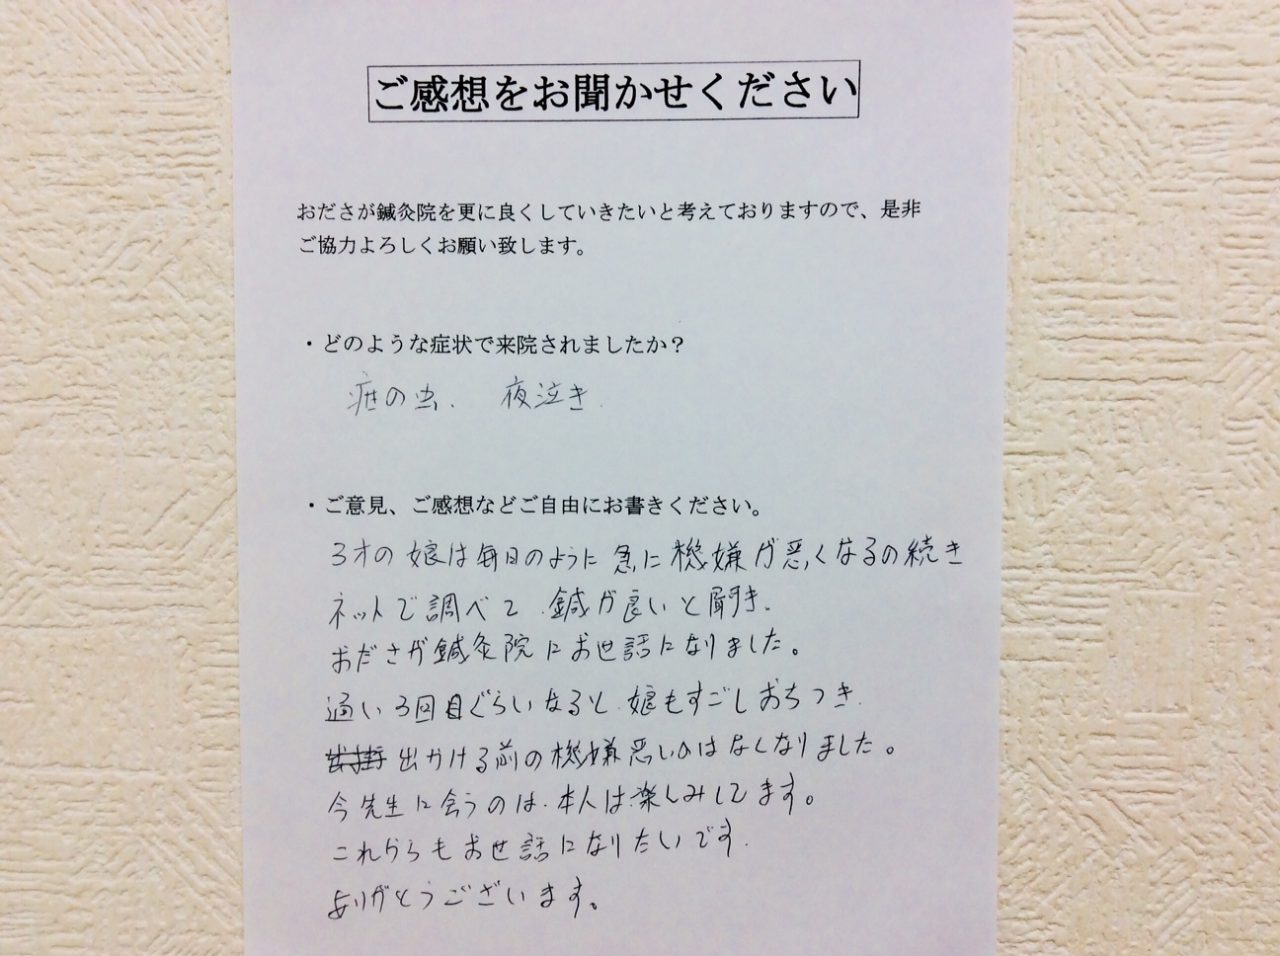 ご感想をお聞かせください
おださが鍼灸院を更に良くしていきたいと考えておりますので、是非
ご協力よろしくお願い致します。
・どのような症状で来院されましたか？
疳の虫. 夜泣き.
・ご意見、ご感想などご自由にお書きください。
3才の娘は毎日のように急に機嫌が悪くなるの続き
ネットで調べて.鍼が良いと聞き.
おださが鍼灸院にお世話になりました。
通い3回目ぐらいなると.娘もすごしおちつき.
出かける前の機嫌悪いのはなくなりました。
今先生に会うのは.本人は楽しみしてます。
これからもお世話になりたいです.
ありがとうございます。